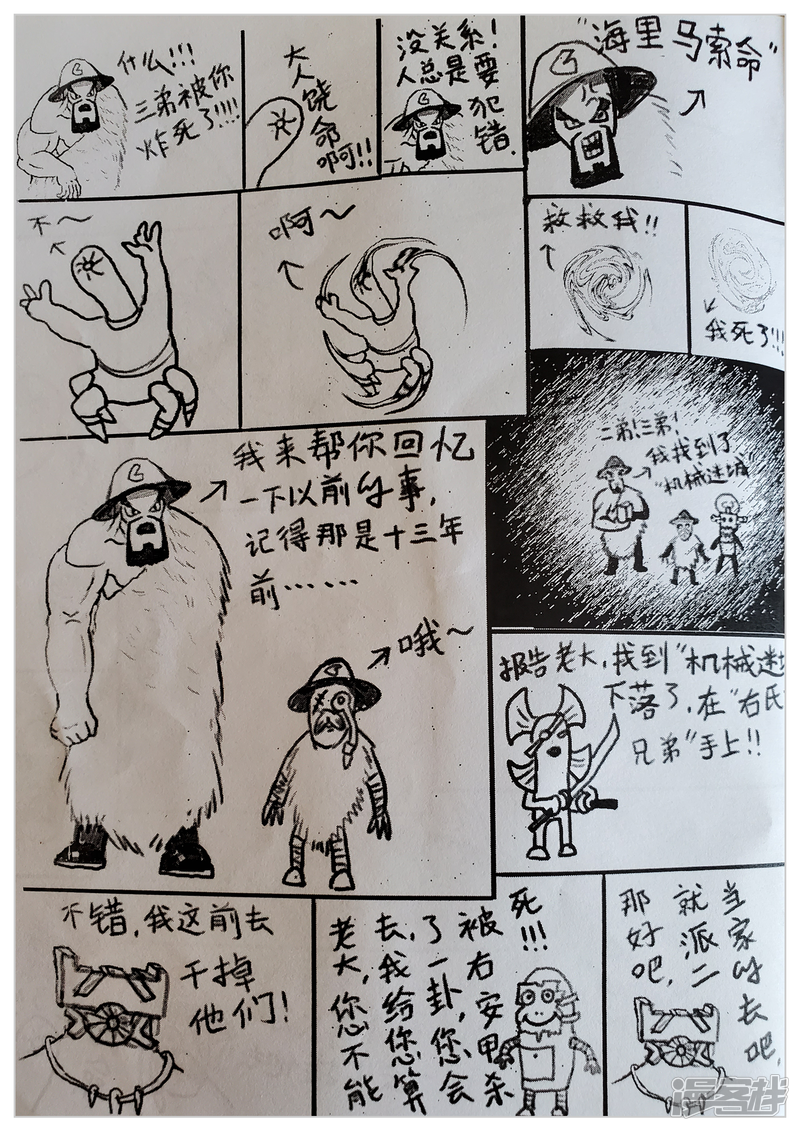 什么!!!
三弟被你
炸死了!!!!
大人饶命啊!!
没关系!
人总是要犯错.
"海里马索命"
不~
啊~
救救我!!
我死了!!!
二弟!三弟!
我找到了
"机械迷城"
我来帮你回忆
一下以前的事,
记得那是十三年
前……
哦~
报告老大,找到"机械迷
下落了,在"右氏
兄弟"手上!!
不错,我这前去
干掉
他们!
老大,您不能
去,我给您算
了一卦,您会
被右安甲杀
死!!!
那好吧,
就派二
当家的去吧,
漫客栈